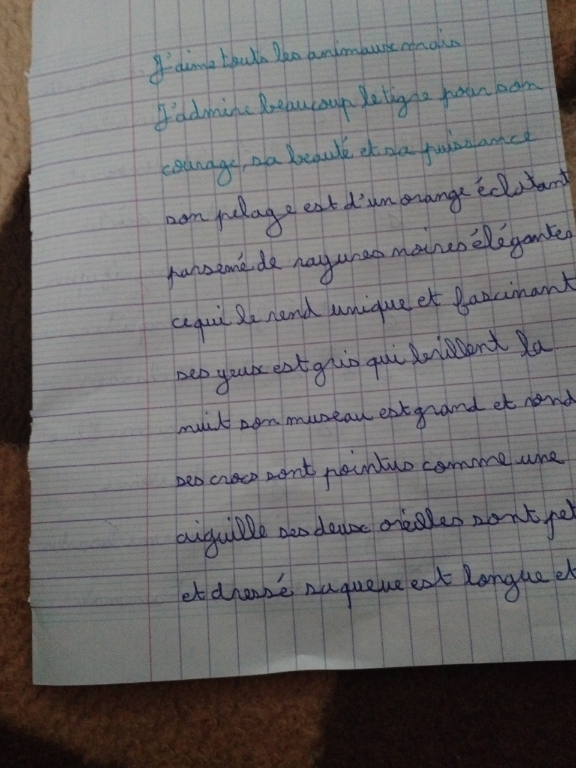 J'aime touts les animaux mais
J'admire beaucoup le tigre pour son
courage, sa beauté et sa puissance
son pelage est d'un orange éclatant
parsemé de rayures noires élégantes
ce qui le rend unique et fascinant
ses yeux est gris qui brillent la
nuit son museau est grand et rond
ses crocs sont pointus comme une
aiguille ses deux oreilles sont pet
et dressé sa queue est longue et